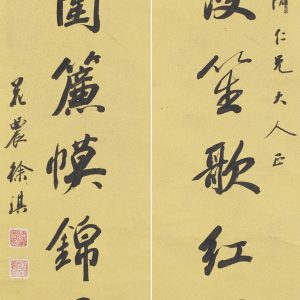 仁兄大人正
笙歌紅
簾幙錦
花農徐琪